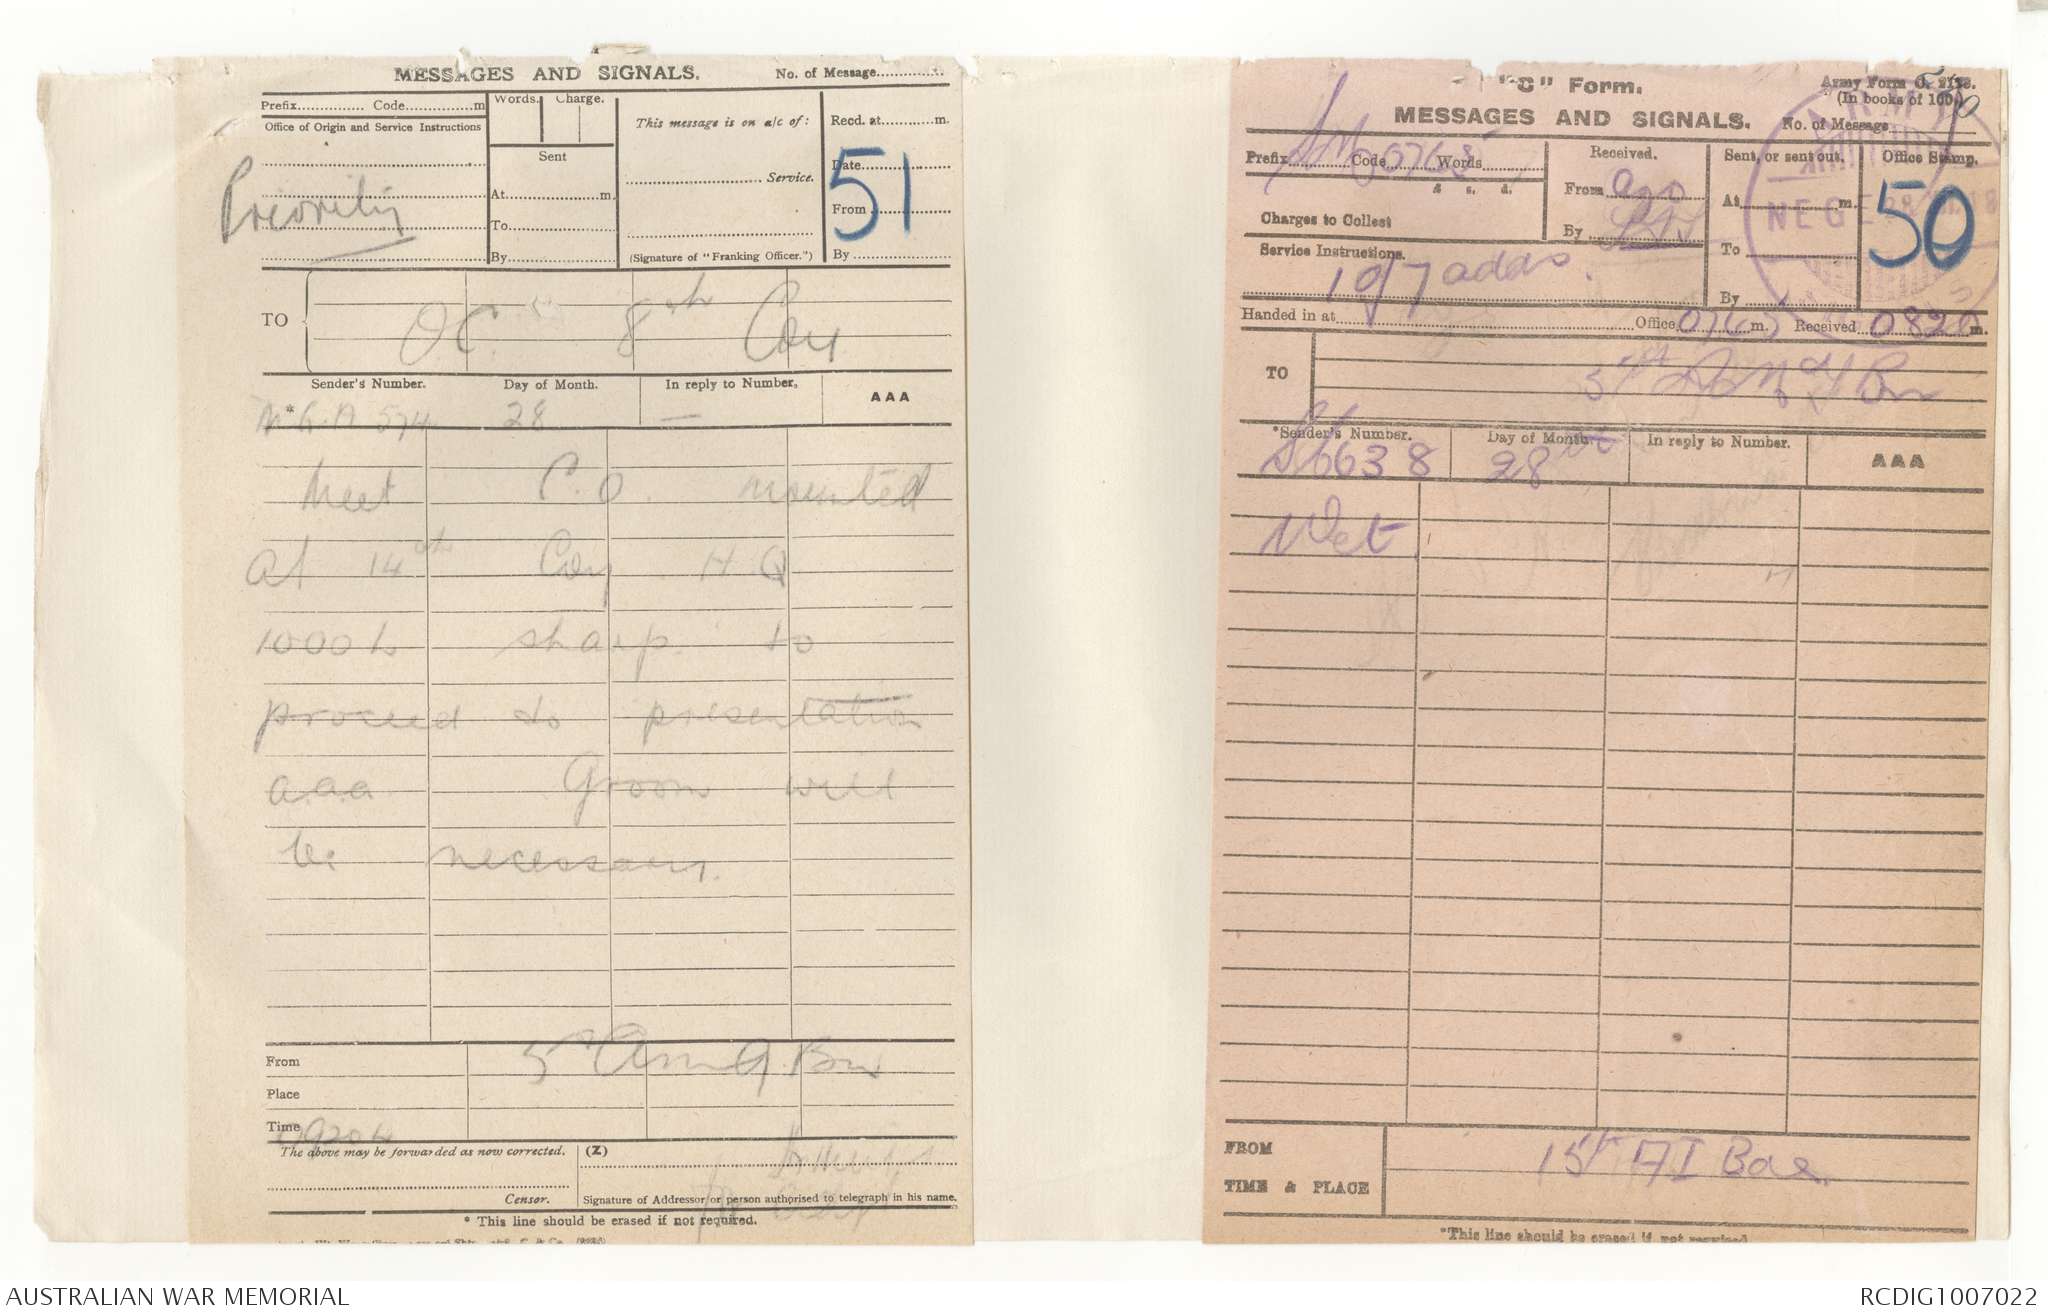 MESSAGES AND SIGNALS. No. of Message
Prefix Code m
Words. Charge.
Office of Origin and Service Instructions
Priority
Sent
At m.
To
By
This message is on a/c of:
Service.
(Signature of "Franking Officer.")
Recd. at m.
Date
51
From
By
TO
OC 8th Coy
Sender's Number. Day of Month. In reply to Number. AAA
* M.G.A 574 28 —
Meet C.O. mounted
at 14th Coy H.Q
1000 h sharp to
proceed to presentation
a.a.a Groom will
be necessary.
From
5th Am G. Bn
Place
Time
0920 h
The above may be forwarded as now corrected. (Z)
Censor. Signature of Addressor or person authorised to telegraph in his name.
* This line should be erased if not required.
"C" Form. Army Form C. 2123.
(In books of 100.)
MESSAGES AND SIGNALS. No. of Message
Prefix SM Code 0765 Words
£ s. d.
Charges to Collect
Service Instructions.
19/7 adds.
Received.
From
By
Sent, or sent out.
At m.
To
By
Office Stamp.
50
Handed in at Office 0765 m. Received 0820 m.
TO
5th Bn
*Sender's Number. Day of Month In reply to Number. AAA
S6638 28th
Wet
FROM
15th AI Bde.
TIME & PLACE
*This line should be erased if not required
AUSTRALIAN WAR MEMORIAL RCDIG1007022